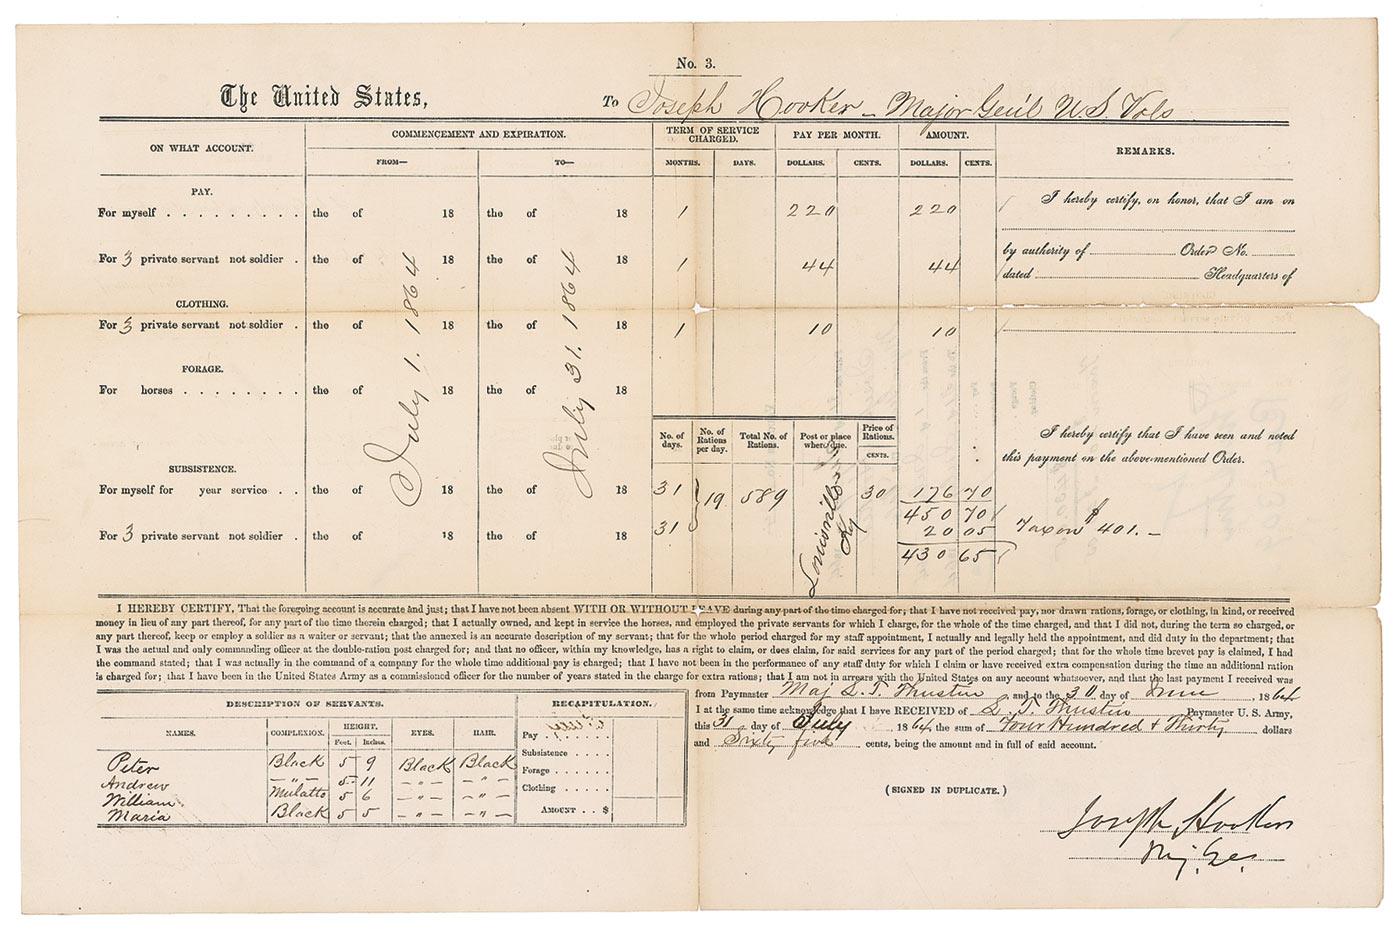 No. 3.
The United States, To Joseph Hooker - Major Gen'l U.S. Vols
ON WHAT ACCOUNT. COMMENCEMENT AND EXPIRATION. TERM OF SERVICE CHARGED. PAY PER MONTH. AMOUNT. REMARKS.
FROM— TO— MONTHS. DAYS. DOLLARS. CENTS. DOLLARS. CENTS.
PAY.
For myself . . . . . . . . . the of 18 the of 18 1 220 220
For 3 private servant not soldier . the of 18 the of 18 1 44 44
CLOTHING.
For 3 private servant not soldier . the of 18 the of 18 1 10 10
FORAGE.
For horses . . . . . . . . the of 18 the of 18
July 1. 1864
July 31. 1864
No. of days. No. of Rations per day. Total No. of Rations. Post or place where due. Price of Rations.
CENTS.
SUBSISTENCE.
For myself for year service . . the of 18 the of 18 31 19 589 Louisville Ky 30 176 70
450 70
For 3 private servant not soldier . the of 18 the of 18 31 20 05 Tax on $401.—
430 65
I hereby certify, on honor, that I am on
by authority of Order No.
dated Headquarters of
I hereby certify that I have seen and noted
this payment on the above-mentioned Order.
I HEREBY CERTIFY, That the foregoing account is accurate and just; that I have not been absent WITH OR WITHOUT LEAVE during any part of the time charged for; that I have not received pay, nor drawn rations, forage, or clothing, in kind, or received
money in lieu of any part thereof, for any part of the time therein charged; that I actually owned, and kept in service the horses, and employed the private servants for which I charge, for the whole of the time charged, and that I did not, during the term so charged, or
any part thereof, keep or employ a soldier as a waiter or servant; that the annexed is an accurate description of my servant; that for the whole period charged for my staff appointment, I actually and legally held the appointment, and did duty in the department; that
I was the actual and only commanding officer at the double-ration post charged for; and that no officer, within my knowledge, has a right to claim, or does claim, for said services for any part of the period charged; that for the whole time brevet pay is claimed, I had
the command stated; that I was actually in the command of a company for the whole time additional pay is charged; that I have not been in the performance of any staff duty for which I claim or have received extra compensation during the time an additional ration
is charged for; that I have been in the United States Army as a commissioned officer for the number of years stated in the charge for extra rations; that I am not in arrears with the United States on any account whatsoever, and that the last payment I received was
from Paymaster Maj L. T. Thustin and to the 30 day of June, 1864
I at the same time acknowledge that I have RECEIVED of L. T. Thustin Paymaster U. S. Army,
this 31 day of July 1864, the sum of Four Hundred & Thirty dollars
and Sixty five cents, being the amount and in full of said account.
(SIGNED IN DUPLICATE.)
Joseph Hooker
Maj. Ge.
DESCRIPTION OF SERVANTS.
NAMES. COMPLEXION. HEIGHT. EYES. HAIR.
Feet. Inches.
Peter Black 5 9 Black Black
Andrew —"— 5 11 —"— —"—
William Mulatto 5 6 —"— —"—
Maria Black 5 5 —"— —"—
RECAPITULATION.
Pay . . . . . . .
Subsistence . . . . .
Forage . . . . . .
Clothing . . . . . .
AMOUNT . . $